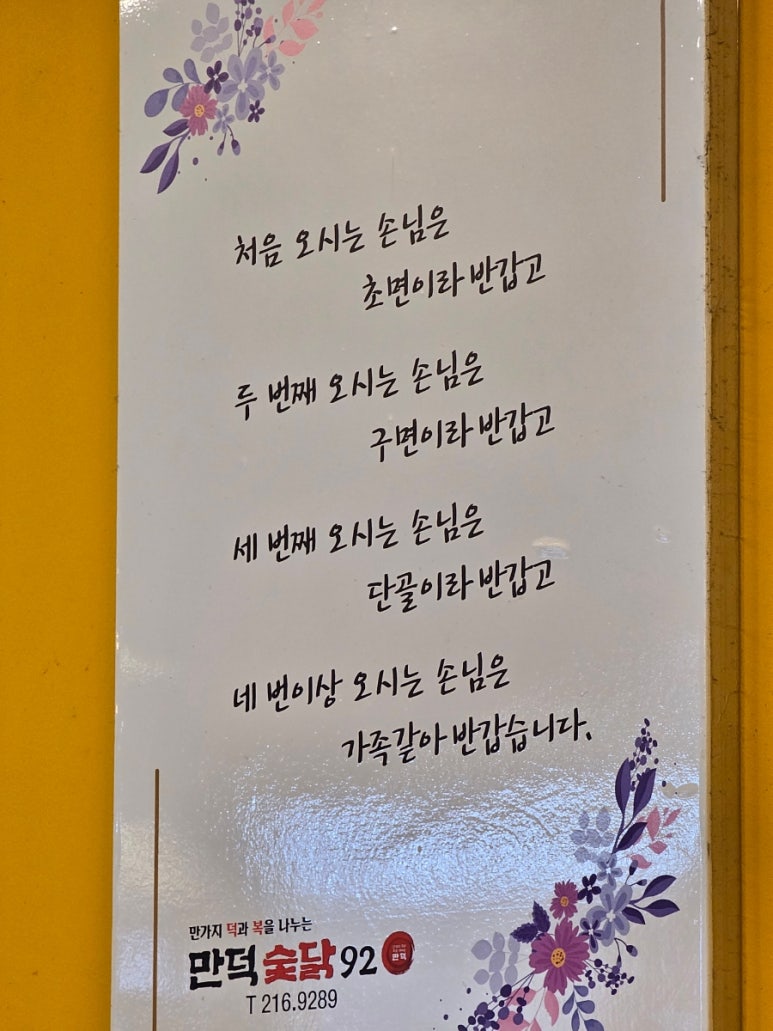 처음 오시는 손님은
초면이라 반갑고
두 번째 오시는 손님은
구면이라 반갑고
세 번째 오시는 손님은
단골이라 반갑고
네 번이상 오시는 손님은
가족같아 반갑습니다.
만가지 덕과 복을 나누는
만덕 숯닭 92
만덕
T 216.9289